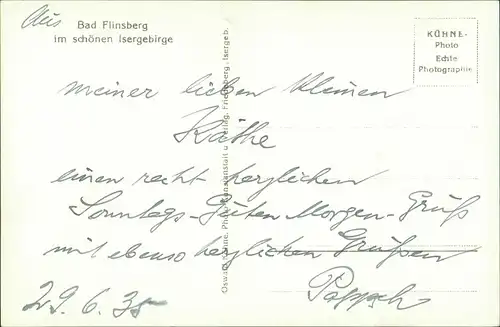 Aus Bad Flinsberg
im schönen Isergebirge
KÜHNE-
Photo
Echte
Photographie
meiner lieben kleinen
Käthe
einen recht herzlichen
Sonntags-Guten Morgen-Gruß
mit ebenso herzlichen Grüßen
29.6.35
Oswald Kühne, Photo Kunstanstalt u. Verlag, Friedeberg, Isergeb.